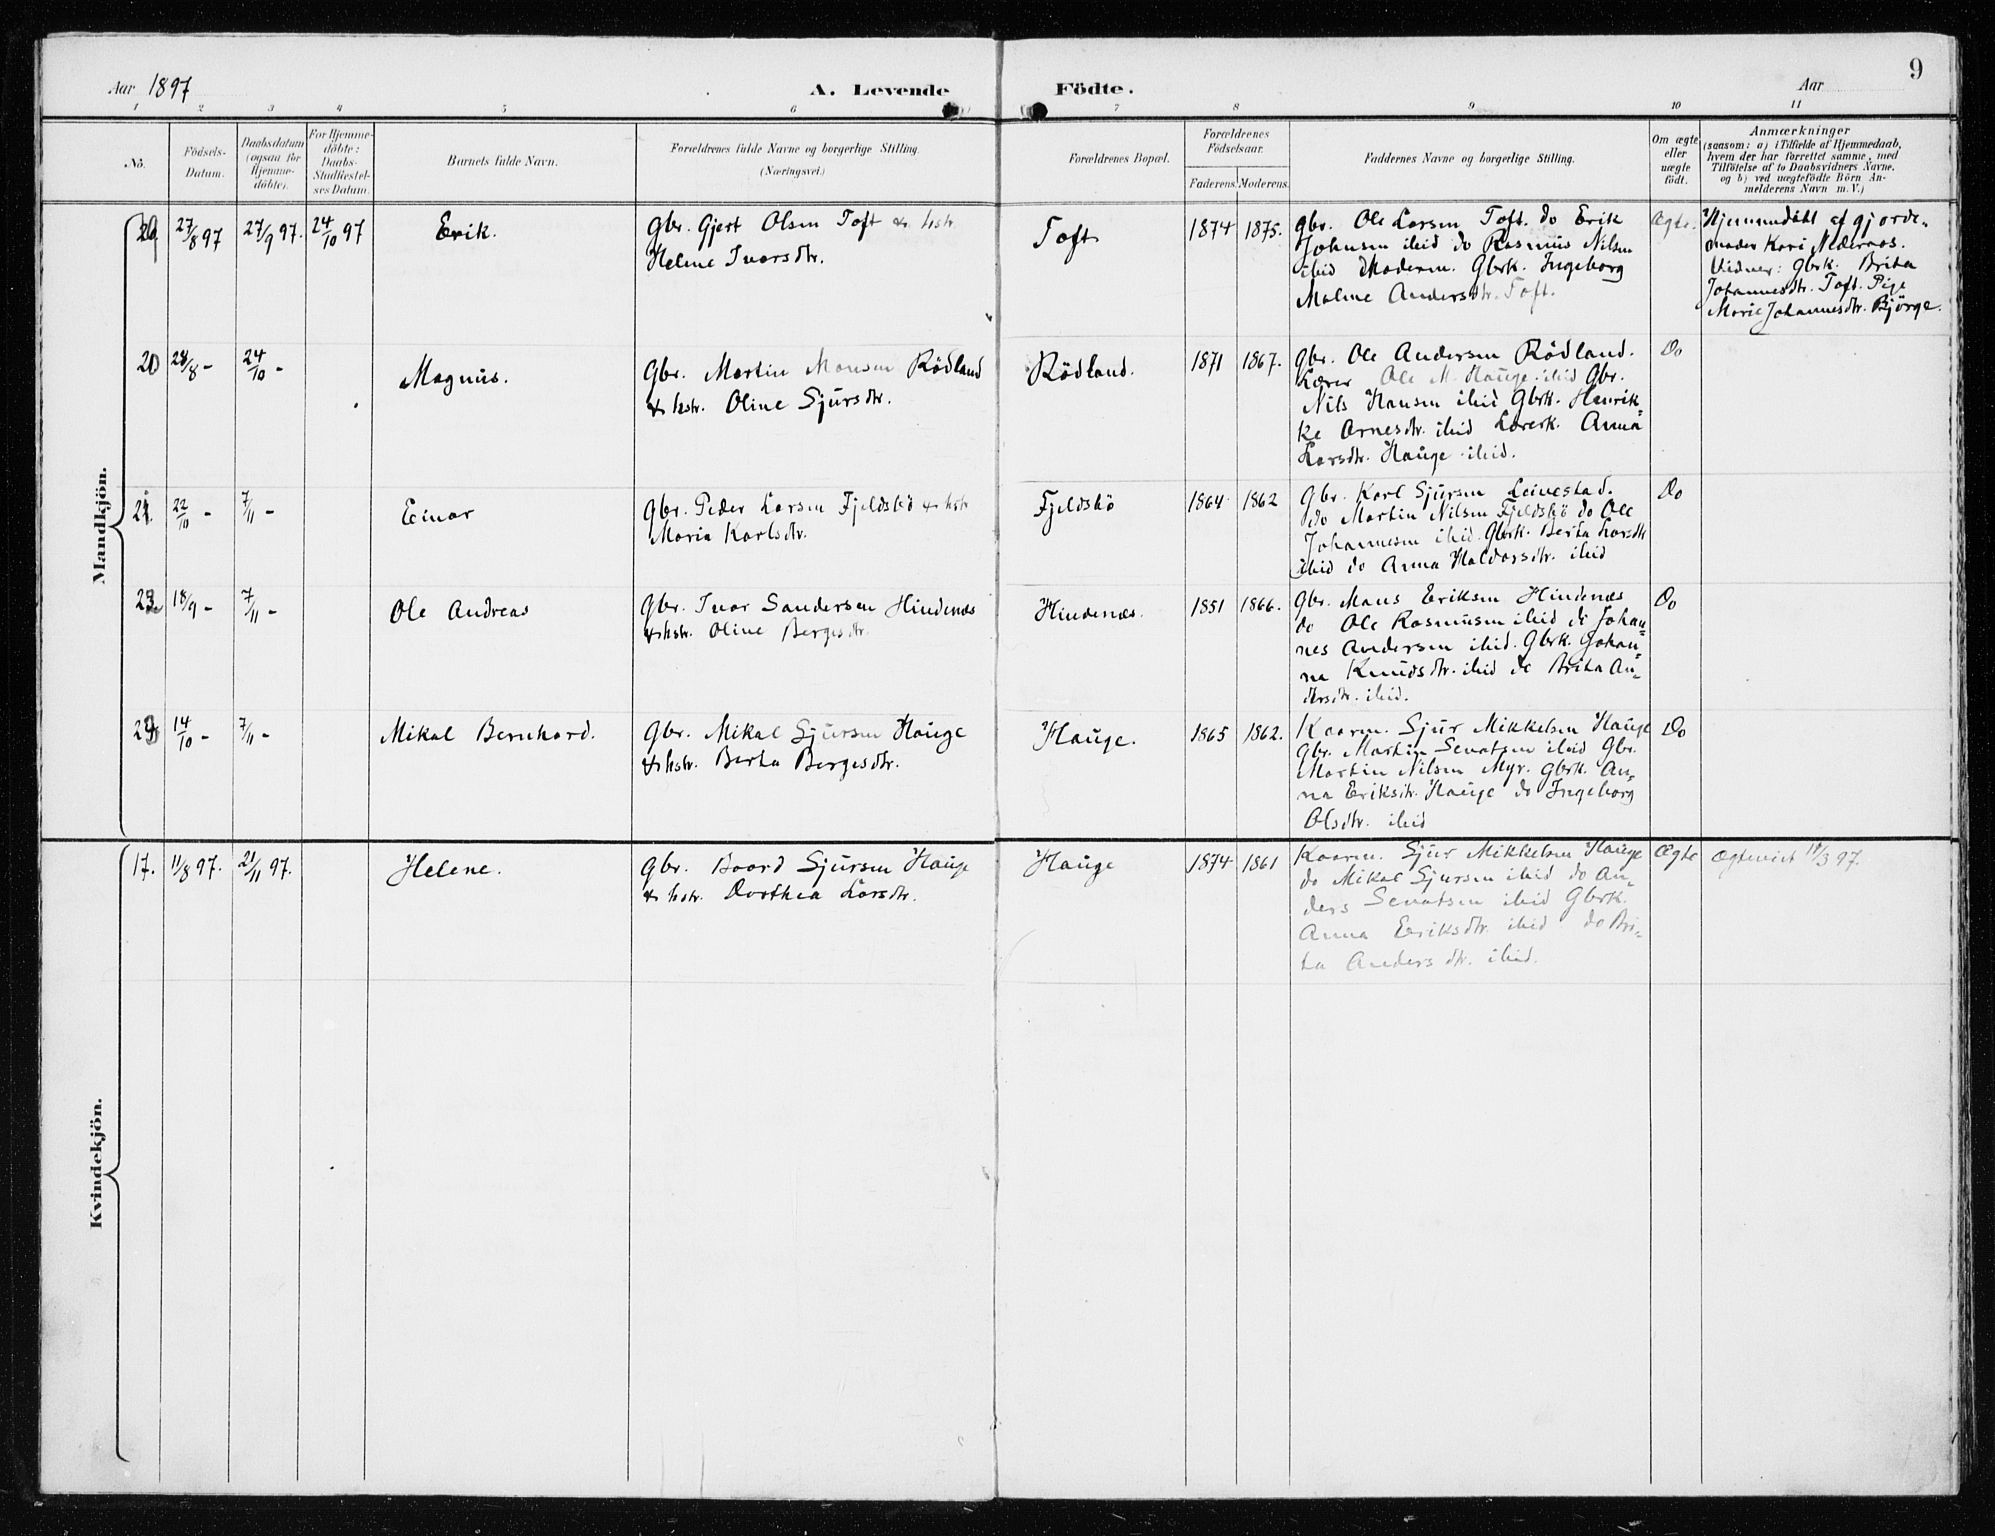 Aar 1897
A. Levende Födte.
Aar
9
1 2 3 4 5 6 7 8 9 10 11
No.
Födsels-
Datum.
Daabsdatum
(ogsaa for
Hjemme-
döbte).
For Hjemme-
döbte:
Daabs-
Stadfæstel-
ses Datum.
Barnets fulde Navn.
Forældrenes fulde Navne og borgerlige Stilling.
(Næringsvei.)
Forældrenes Bopæl.
Forældrenes
Födselsaar.
Faderens. Moderens.
Faddernes Navne og borgerlige Stilling.
Om ægte
eller
uægte
födt.
Anmærkninger
(saasom: a) i Tilfælde af Hjemmedaab,
hvem der har forrettet samme, med
Tilföielse af to Daabsvidners Navne.
og b) ved uægtefödte Börn An-
melderens Navn m. V.)
Mandkjön.
27/8 97 27/9 97. 24/10 97
Erik.
Gbr. Gjert Olsen Toft & hstr.
Helene Ivarsdtr.
Toft
1874 1875.
Gbr. Ole Larsen Toft. do Erik
Johnsen ibid do Rasmus Nilsen
ibid Moderen. Gbrk. Ingeborg
Malene Andersdtr. Toft.
Ægte.
Hjemmedöbt af gjorde-
moder Kari Nederaas.
Vidner: Gbrk. Brita
Johannesdtr. Toft. Pige
Marie Johannesdtr. Björge.
20 28/8 - 24/10 -
Magnus.
Gbr. Martin Monsen Rödland
& hstr. Oline Sjursdtr.
Rödland.
1871 1867.
Gbr. Ole Andersen Rödland.
Lærer Ole M. Hauge ibid Gbr.
Nils Hansen ibid Gbrk. Henrik-
ke Arnesdtr. ibid Lærerk. Anna
Larsdtr. Hauge ibid.
Do
21. 22/10 - 7/11 -
Einar
Gbr. Peder Larsen Fjeldsbö & hstr
Maria Karlsdtr.
Fjeldsbö
1864 1862
Gbr. Karl Sjursen Leivestad.
do Martin Nilsen Fjeldsbö do Ole
Johannesen ibid. Gbrk. Berta Larsdtr
ibid do Anna Haldorsdtr. ibid
Do
18/9 - 7/11 -
Ole Andreas
Gbr. Ivar Sandersen Hindenæs
& hstr. Oline Bergesdtr.
Hindenæs.
1851 1866.
Gbr. Mans Eriksen Hindenæs
do Ole Rasmusen ibid do Johan-
nes Andersen ibid. Gbrk. Johan-
na Knudsdtr. ibid do Brita An-
dersdtr. ibid.
Do
14/10 - 7/11 -
Mikal Bernhard.
Gbr. Mikal Sjursen Hauge
& hstr. Berta Bergesdtr.
Hauge.
1865 1862.
Kaarm. Sjur Mikkelsen Hauge
Gbr. Martin Senatsen ibid Gbr.
Martin Nilsen Myr. Gbrk. An-
na Eriksdtr. Hauge do Ingeborg
Olsdtr. ibid
Do
Kvindekjön.
17. 11/8 97. 21/11 97.
Helene.
Gbr. Baard Sjursen Hauge
& hstr. Dorthea Larsdtr.
Hauge
1874 1861
Kaarm. Sjur Mikkelsen Hauge
do Mikal Sjursen ibid do An-
ders Senatsen ibid Gbrk.
Anna Eriksdtr. ibid do Bri-
ta Andersdtr. ibid.
Ægte
Ægteviet 3 97.